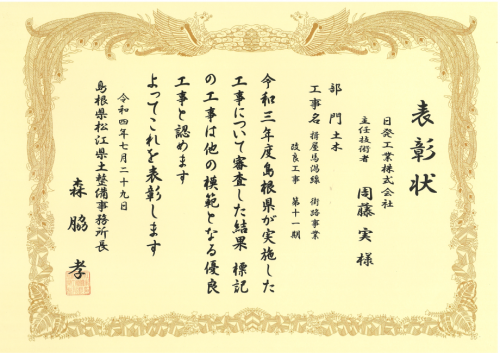 表彰状
日発工業株式会社
主任技術者
周藤 実 様
部 門 土木
工事名 揖屋馬潟線 街路事業
改良工事 第十一期
令和三年度島根県が実施した
工事について審査した結果 標記
の工事は他の模範となる優良
工事と認めます
よってこれを表彰します
令和四年七月二十九日
島根県松江県土整備事務所長
森脇 孝